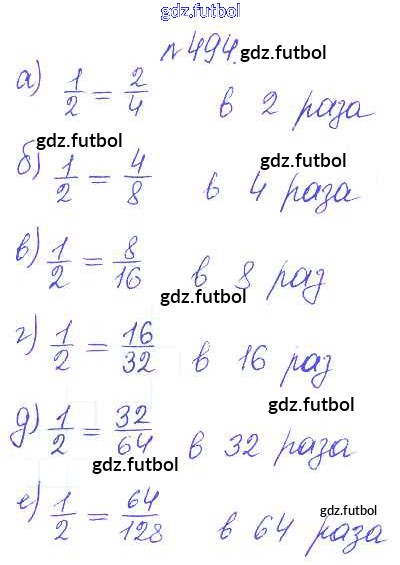 gdz.futbol
№494. gdz.futbol
а) 1/2 = 2/4 в 2 раза
gdz.futbol
б) 1/2 = 4/8 в 4 раза gdz.futbol
в) 1/2 = 8/16 в 8 раз
gdz.futbol
г) 1/2 = 16/32 в 16 раз
gdz.futbol
д) 1/2 = 32/64 в 32 раза
gdz.futbol
е) 1/2 = 64/128 в 64 раза
gdz.futbol